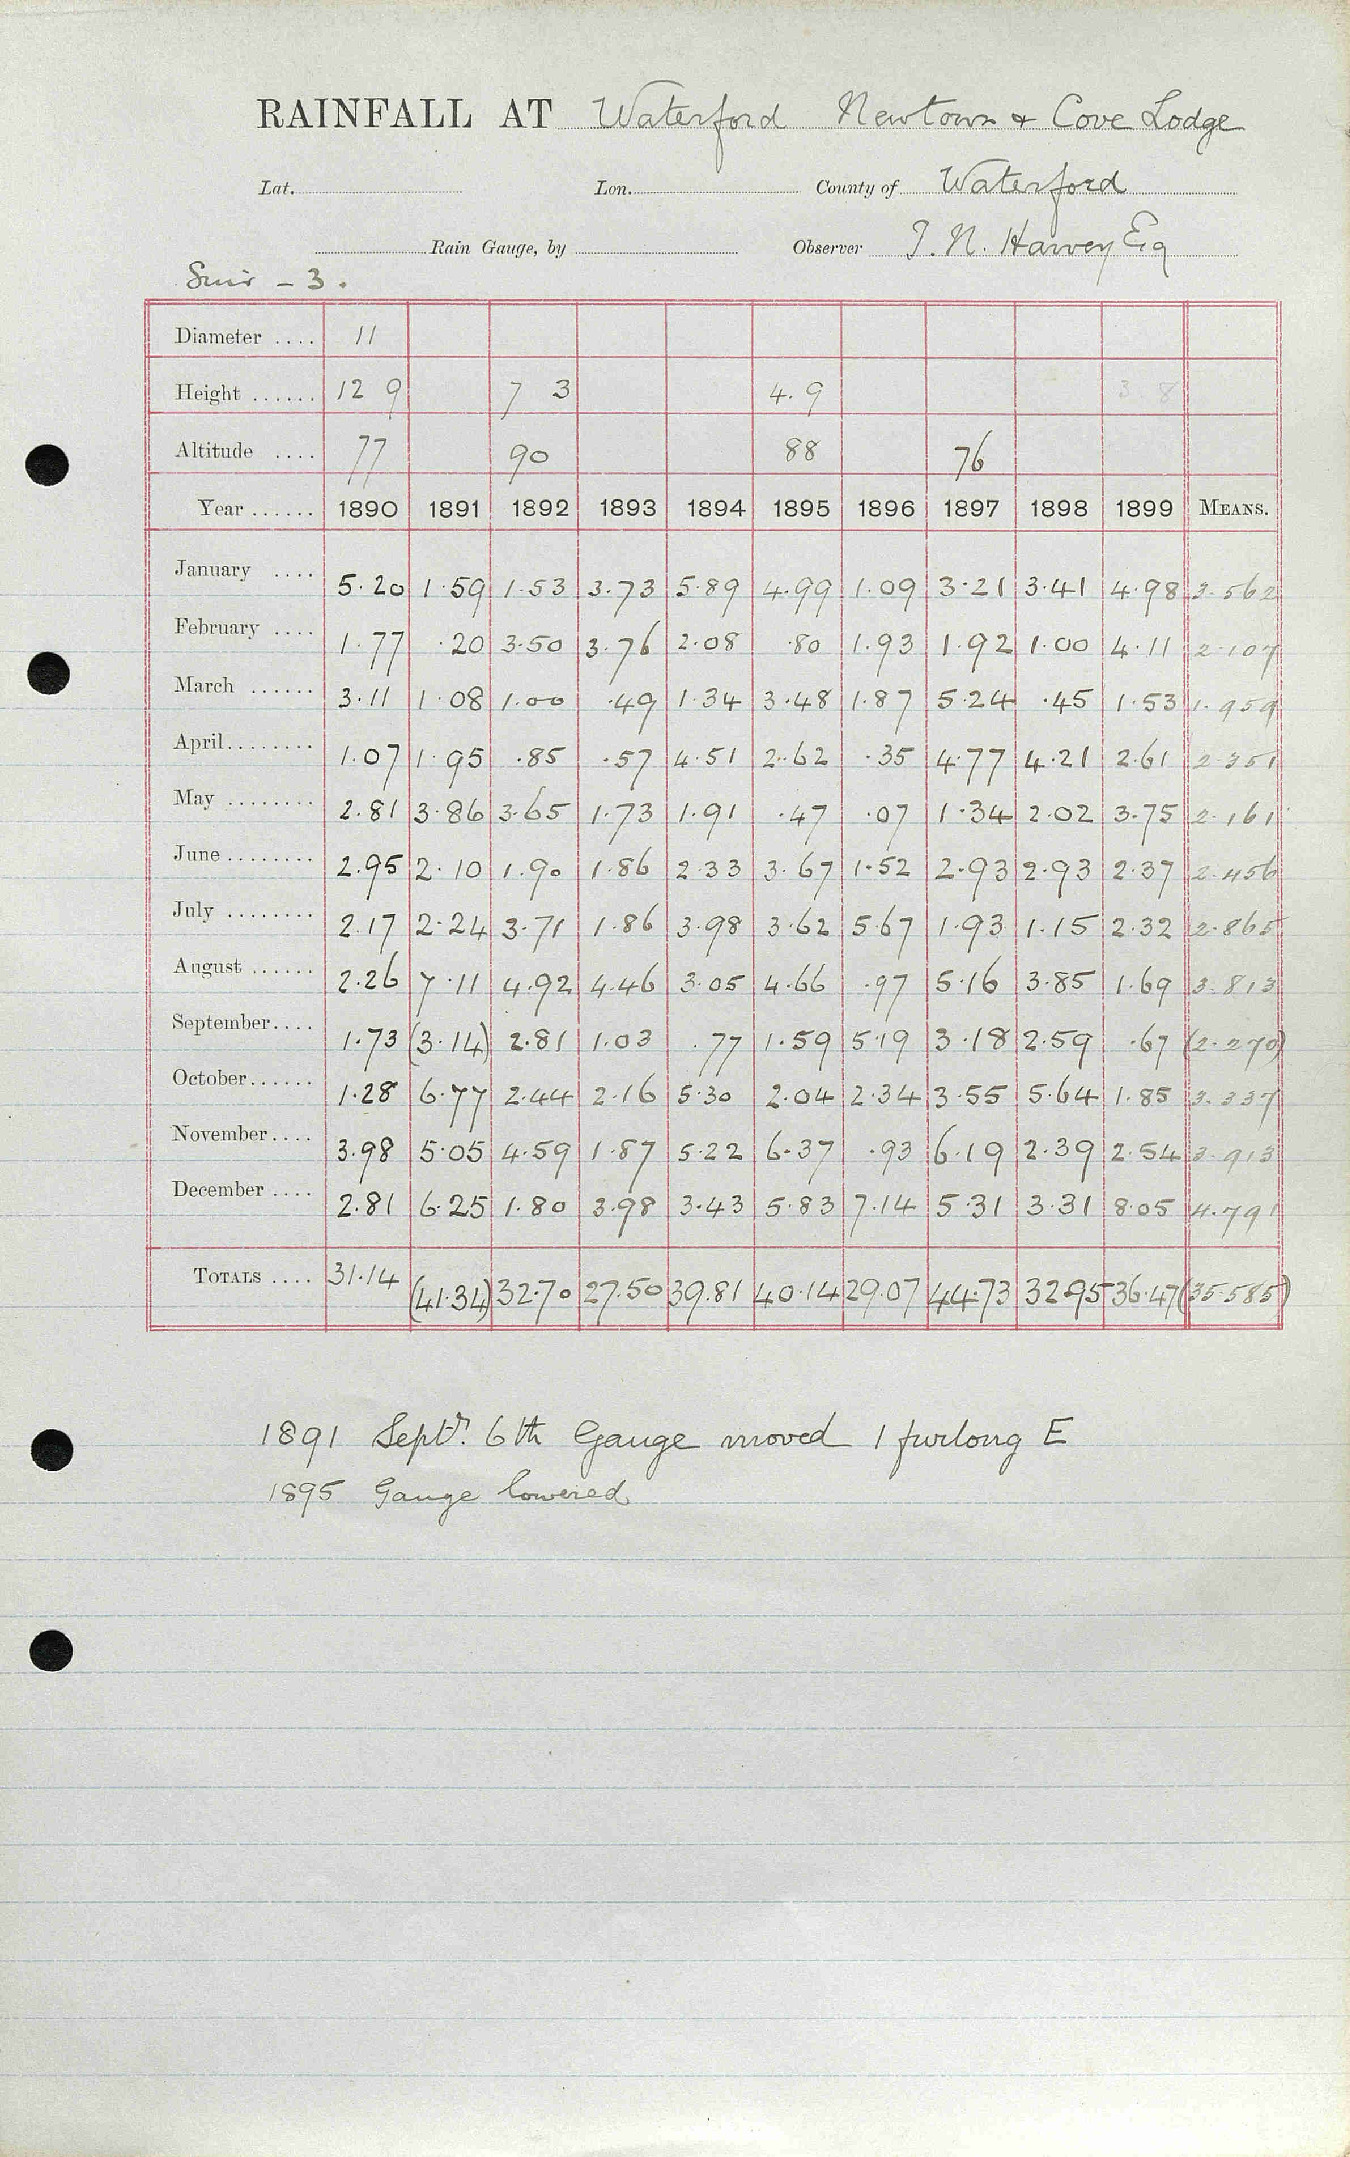 RAINFALL AT Waterford Newtown & Cove Lodge
Lat. Lon. County of Waterford
Rain Gauge, by Observer J. N. Harvey Esq
Suir - 3.
Diameter .... 11
Height ...... 12 9 7 3 4.9 3 8
Altitude .... 77 90 88 76
Year ...... 1890 1891 1892 1893 1894 1895 1896 1897 1898 1899 MEANS.
January .... 5.20 1.59 1.53 3.73 5.89 4.99 1.09 3.21 3.41 4.98 3.562
February .... 1.77 .20 3.50 3.76 2.08 .80 1.93 1.92 1.00 4.11 2.107
March ...... 3.11 1.08 1.00 .49 1.34 3.48 1.87 5.24 .45 1.53 1.959
April........ 1.07 1.95 .85 .57 4.51 2.62 .35 4.77 4.21 2.61 2.351
May ........ 2.81 3.86 3.65 1.73 1.91 .47 .07 1.34 2.02 3.75 2.161
June ........ 2.95 2.10 1.90 1.86 2.33 3.67 1.52 2.93 2.93 2.37 2.456
July ........ 2.17 2.24 3.71 1.86 3.98 3.62 5.67 1.93 1.15 2.32 2.865
August ...... 2.26 7.11 4.92 4.46 3.05 4.66 .97 5.16 3.85 1.69 3.813
September.... 1.73 (3.14) 2.81 1.03 .77 1.59 5.19 3.18 2.59 .67 (2.270)
October...... 1.28 6.77 2.44 2.16 5.30 2.04 2.34 3.55 5.64 1.85 3.337
November.... 3.98 5.05 4.59 1.87 5.22 6.37 .93 6.19 2.39 2.54 3.913
December .... 2.81 6.25 1.80 3.98 3.43 5.83 7.14 5.31 3.31 8.05 4.791
TOTALS .... 31.14 (41.34) 32.70 27.50 39.81 40.14 29.07 44.73 32.95 36.47 (35.585)
1891 Septr. 6th Gauge moved 1 furlong E
1895 Gauge lowered